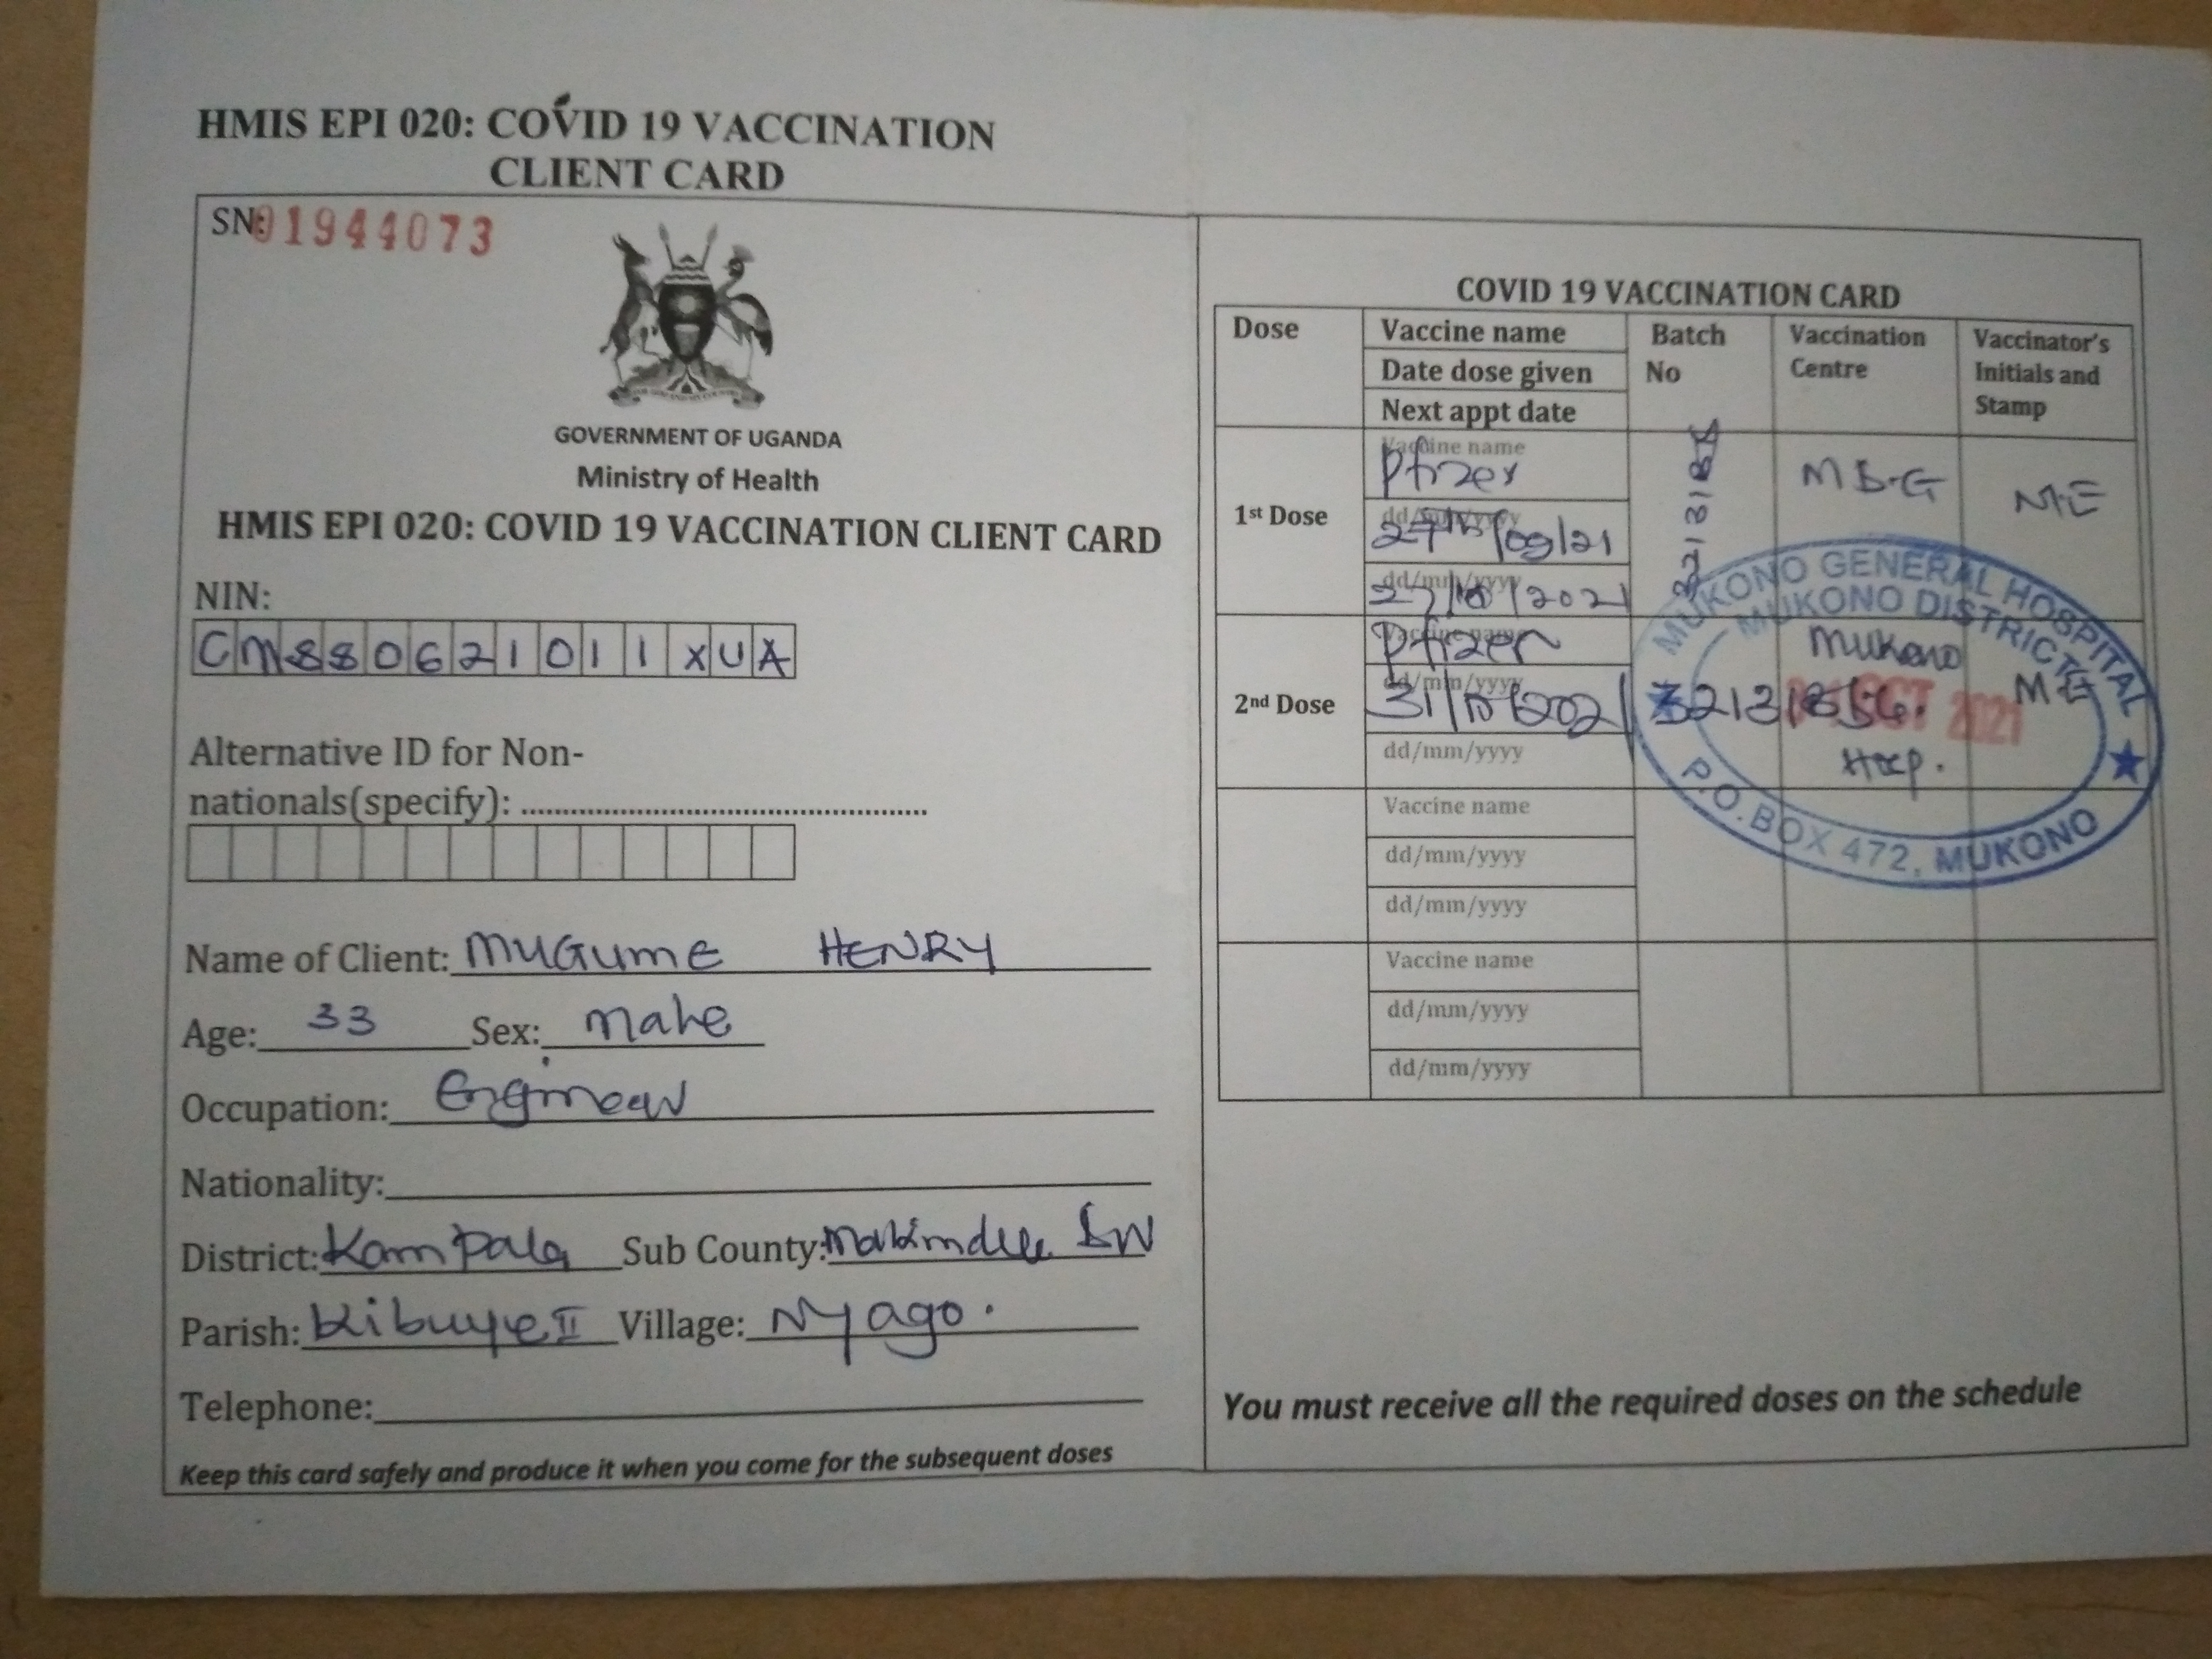 HMIS EPI 020: COVID 19 VACCINATION
CLIENT CARD
SN: 01944073
GOVERNMENT OF UGANDA
Ministry of Health
HMIS EPI 020: COVID 19 VACCINATION CLIENT CARD
NIN:
CM880621011XUA
Alternative ID for Non-
nationals(specify): ........................................
Name of Client: MUGUME HENRY
Age: 33 Sex: Male
Occupation: Engineer
Nationality:
District: Kampala Sub County:
Parish: Kibuye II Village: Nyago.
Telephone:
Keep this card safely and produce it when you come for the subsequent doses
COVID 19 VACCINATION CARD
Dose
Vaccine name
Date dose given
Next appt date
Batch
No
Vaccination
Centre
Vaccinator's
Initials and
Stamp
1st Dose
Vaccine name
Pfizer
dd/mm/yyyy
dd/mm/yyyy
2nd Dose
Pfizer
dd/mm/yyyy
dd/mm/yyyy
Mukono
Hosp.
OCT 2021
MUKONO GENERAL HOSPITAL
MUKONO DISTRICT
P.O.BOX 472, MUKONO
Vaccine name
dd/mm/yyyy
dd/mm/yyyy
Vaccine name
dd/mm/yyyy
dd/mm/yyyy
You must receive all the required doses on the schedule